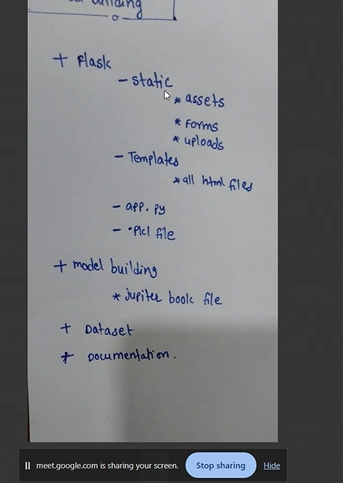 building
+ Flask
- static
* assets
* forms
* uploads
- Templates
* all html files
- app.py
- .pkl file
+ model building
* jupiter book file
+ Dataset
+ Documentation.
meet.google.com is sharing your screen. Stop sharing Hide